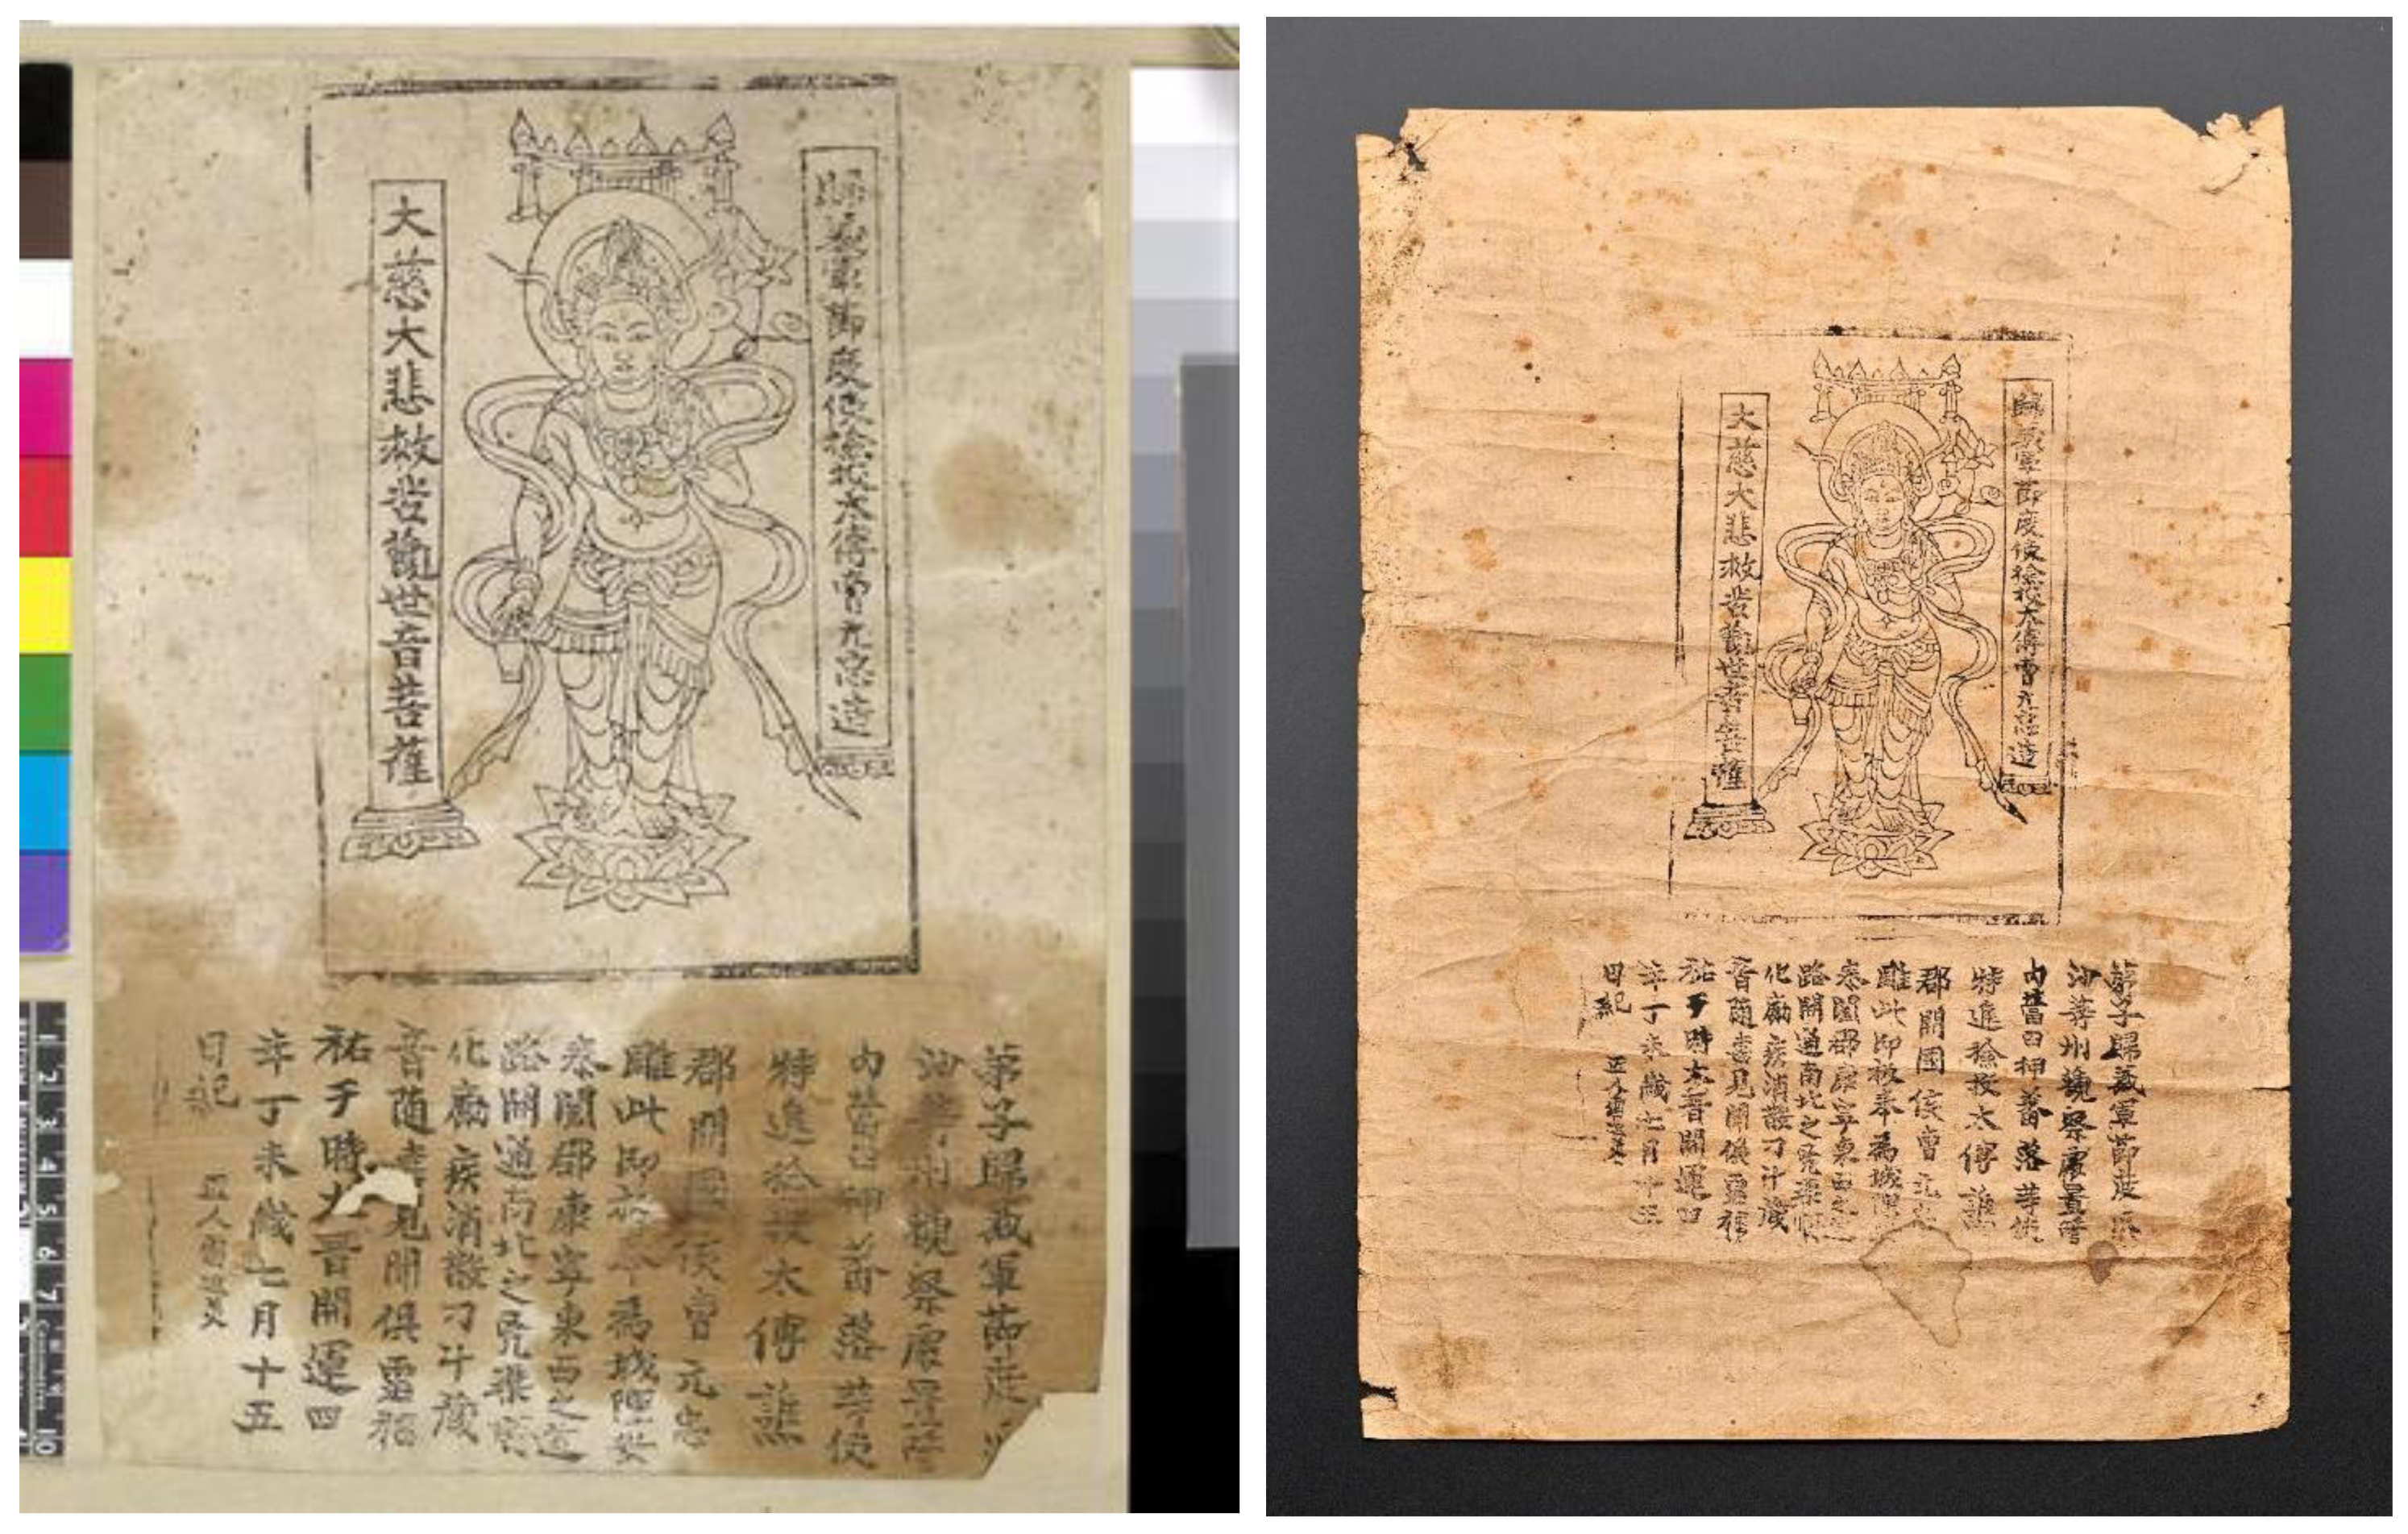 歸義軍節度使檢校太傅曹元忠造
大慈大悲救苦觀世音菩薩
弟子歸義軍節度瓜
沙等州觀察處置管
內營田押蕃落等使
特進檢校太傅譙
郡開國侯曹元忠
雕此印板奉為城隍安
泰闔郡康寧東西之道
路開通南北之兇渠順
化勵疾消散刁斗藏
音隨喜見聞俱霑福
祐于時大晉開運四
年丁未歲七月十五
日紀 匠人雷延美
1 2 3 4 5 6 7 Centimetres 10
歸義軍節度使檢校太傅曹元忠造
大慈大悲救苦觀世音菩薩
弟子歸義軍節度瓜
沙等州觀察處置管
內營田押蕃落等使
特進檢校太傅譙
郡開國侯曹元忠
雕此印板奉為城隍
泰闔郡康寧東西之道
路開通南北之兇渠順
化勵疾消散刁斗藏
音隨喜見聞俱霑福
祐于時大晉開運四
年丁未歲七月十五
日紀 匠人雷延美